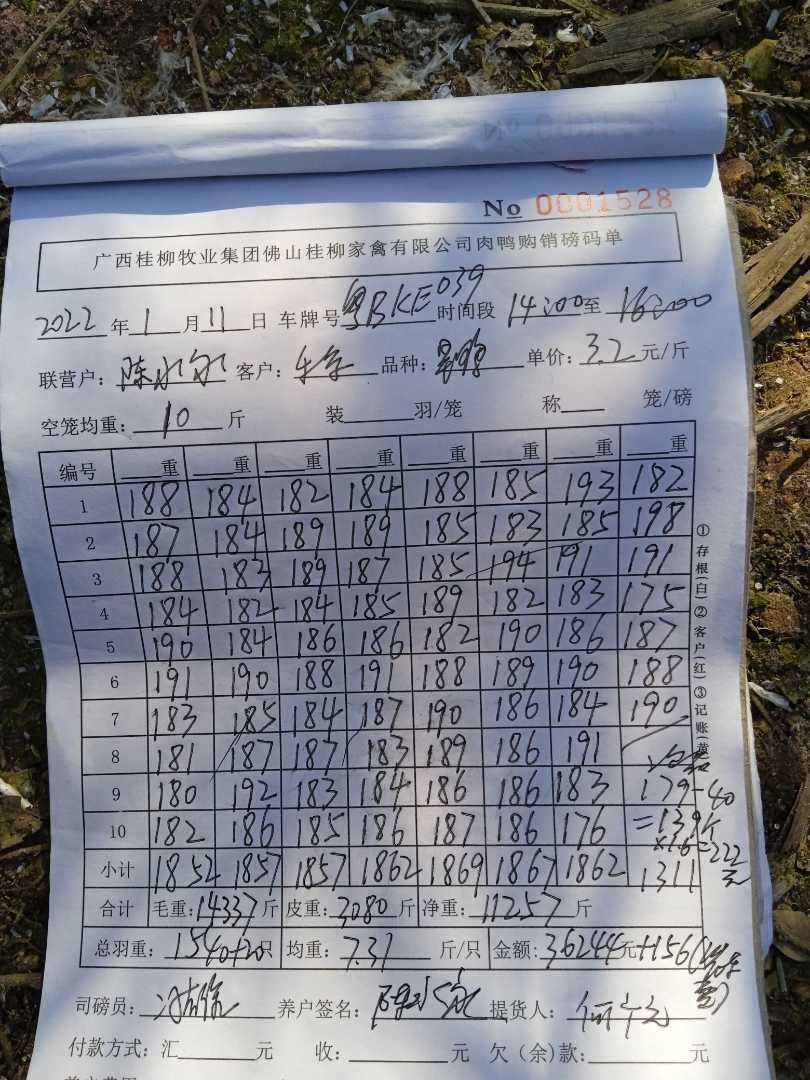 No 0001528
广西桂柳牧业集团佛山桂柳家禽有限公司肉鸭购销磅码单
2022年1月11日 车牌号粤BKE039时间段14:00至16:00
联营户: 陈 客户: 品种: 单价:3.2元/斤
空笼均重:10斤 装 羽/笼 称 笼/磅
编号 重 重 重 重 重 重 重 重
1 188 184 182 184 188 185 193 182
2 187 184 189 189 185 183 185 198
3 188 183 189 187 185 194 191 191
4 184 182 184 185 189 182 183 175
5 190 184 186 186 182 190 186 187
6 191 190 188 191 188 189 190 188
7 183 185 184 187 190 186 184 190
8 181 187 187 183 189 186 191
9 180 192 183 184 186 186 183 179-40
10 182 186 185 186 187 186 176 =139斤
×1.6=222元
小计 1852 1857 1857 1862 1869 1867 1862 1311
合计 毛重:14337斤 皮重:3080斤 净重:11257斤
总羽重:1540+20只 均重:7.31斤/只 金额:36244元+156
司磅员: 养户签名: 提货人:
付款方式:汇 元 收: 元 欠(余)款: 元
①存根(白)②客户(红)③记账(黄